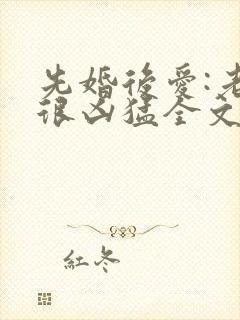 先婚後愛:老
很凶猛全文
紅冬